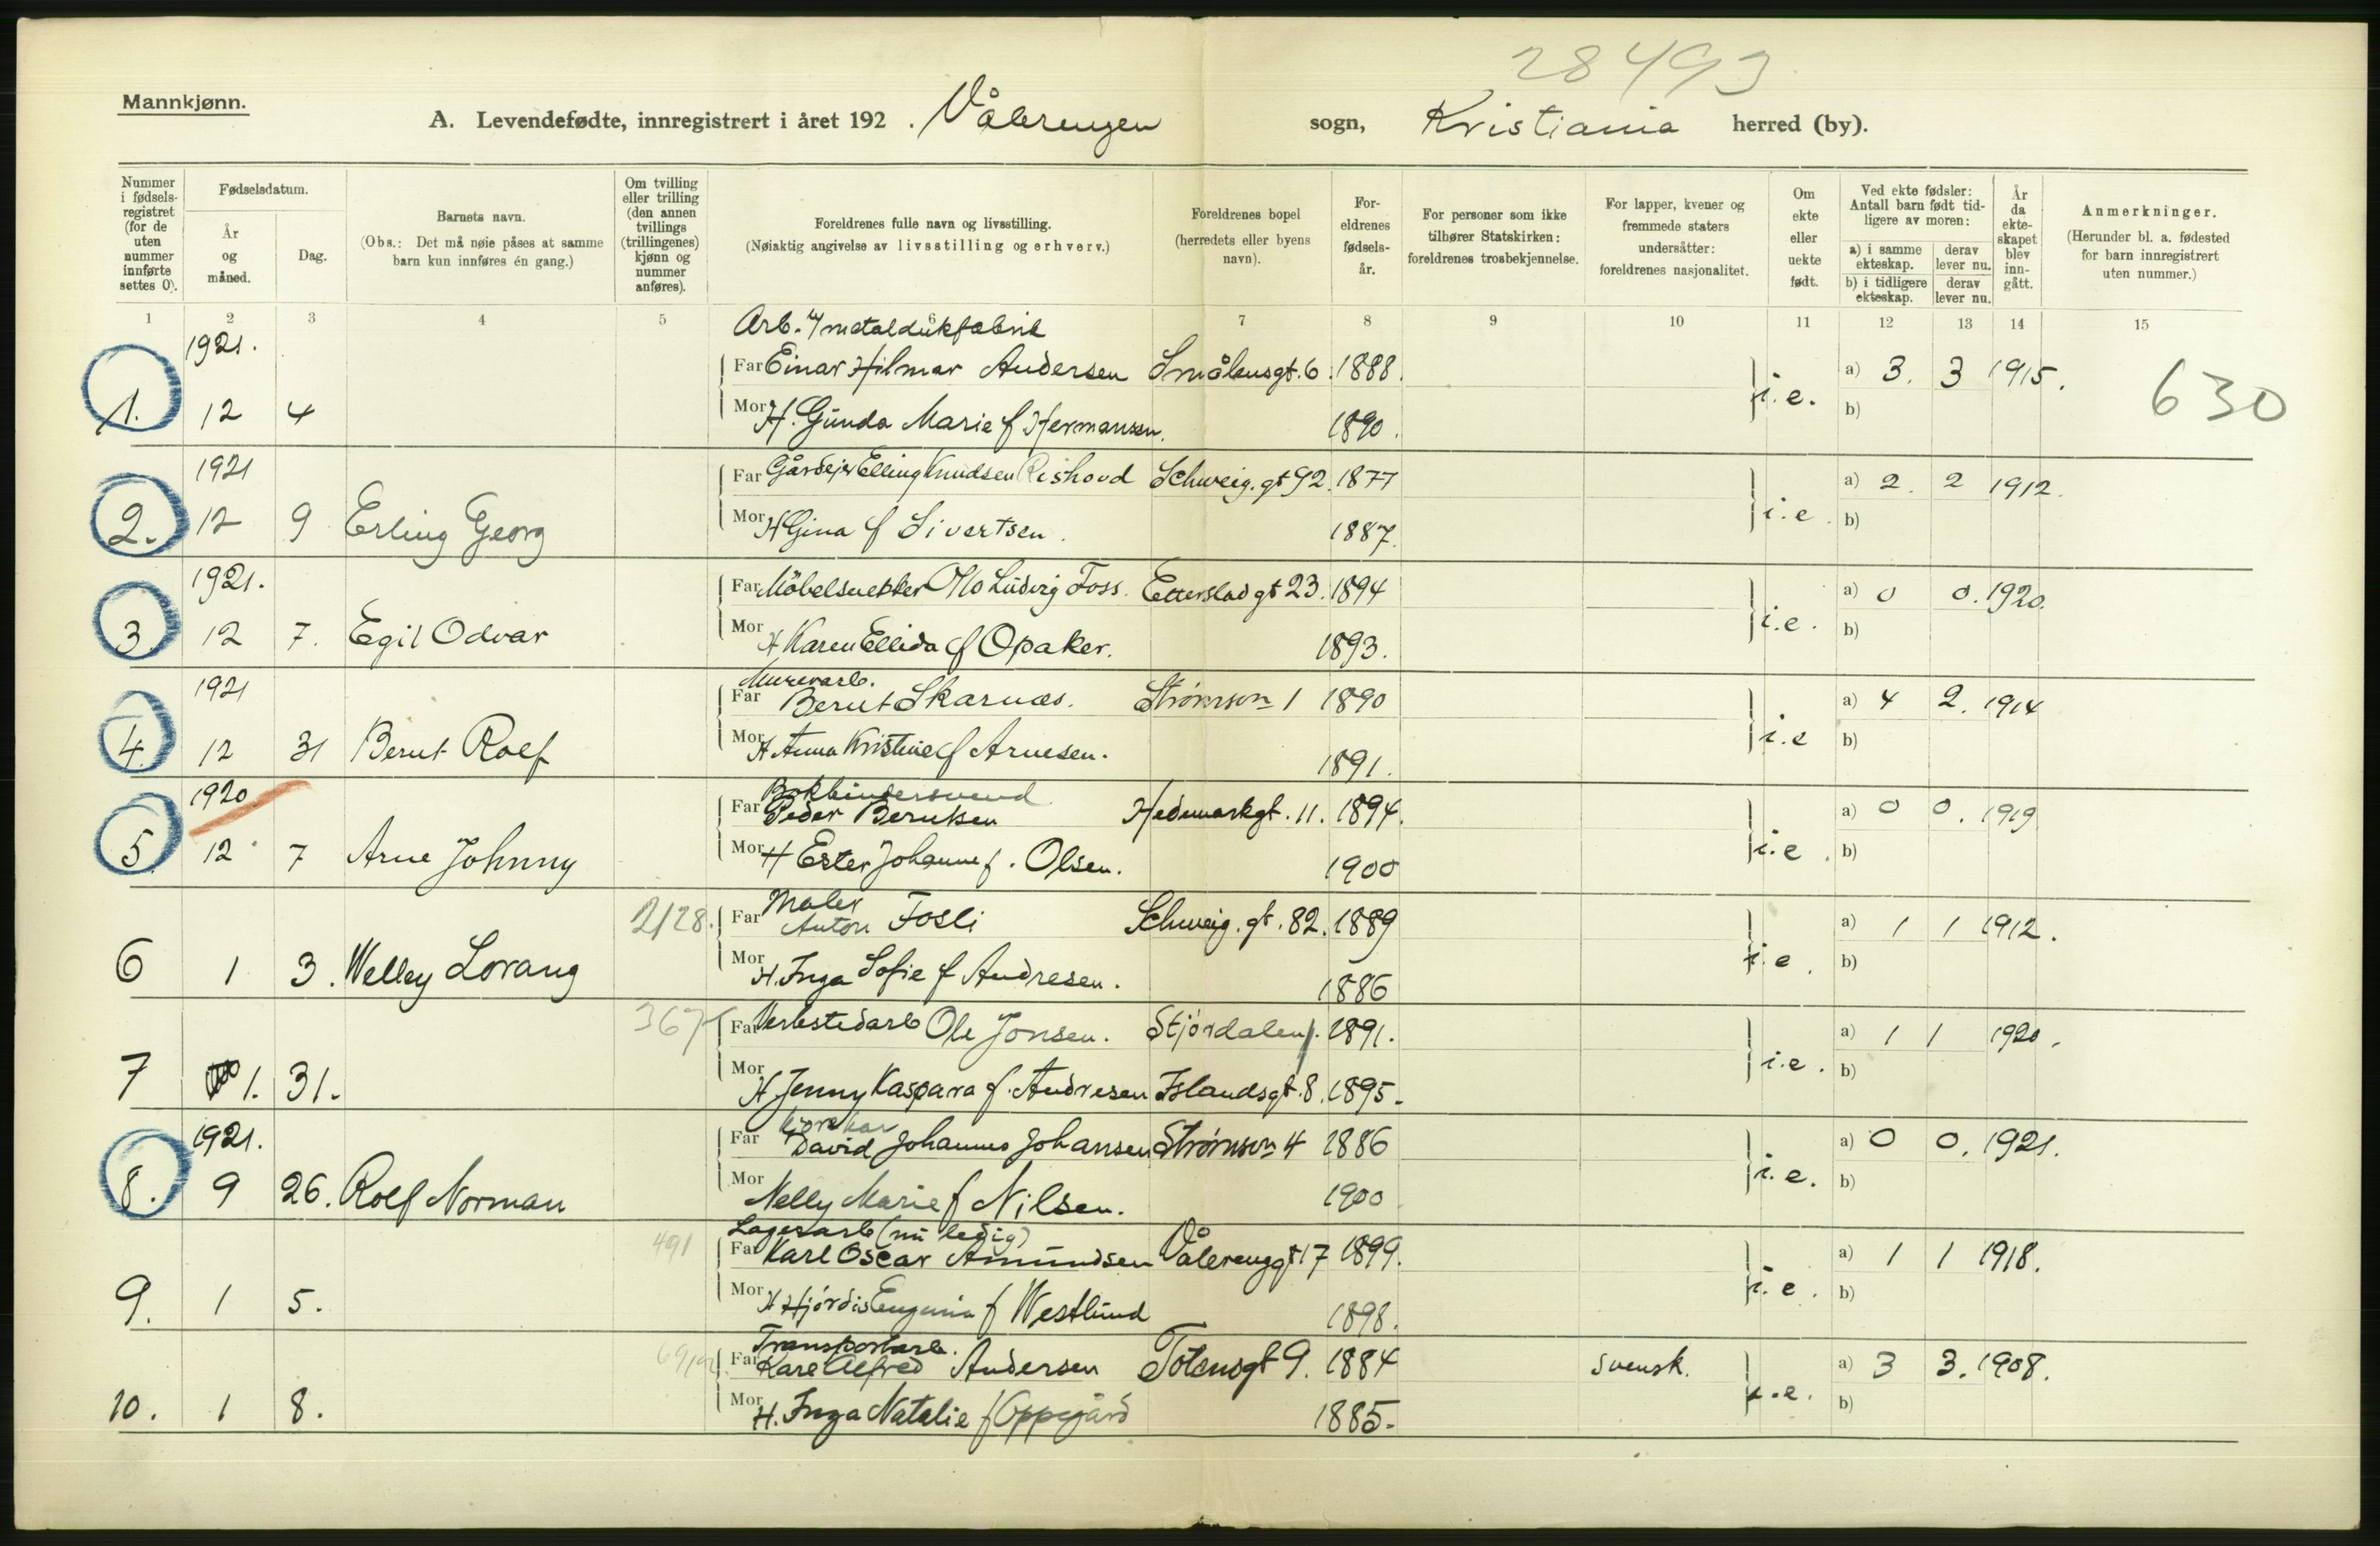 28493
Mannkjønn.
A. Levendefødte, innregistrert i året 192 . Vålerengen sogn, Kristiania herred (by).
Nummer i fødselsregistret (for de uten nummer innførte settes 0).
Fødselsdatum.
År og måned.
Dag.
Barnets navn.
(Obs.: Det må nøie påses at samme barn kun innføres én gang.)
Om tvilling eller trilling (den annen tvillings (trillingenes) kjønn og nummer anføres).
Foreldrenes fulle navn og livsstilling.
(Nøiaktig angivelse av livsstilling og erhverv.)
Foreldrenes bopel (herredets eller byens navn).
Foreldrenes fødselsår.
For personer som ikke tilhører Statskirken: foreldrenes trosbekjennelse.
For lapper, kvener og fremmede staters undersåtter: foreldrenes nasjonalitet.
Om ekte eller uekte født.
Ved ekte fødsler: Antall barn født tidligere av moren:
a) i samme ekteskap. derav lever nu.
b) i tidligere ekteskap. derav lever nu.
År da ekteskapet blev inngått.
Anmerkninger.
(Herunder bl. a. fødested for barn innregistrert uten nummer.)
1 2 3 4 5 6 7 8 9 10 11 12 13 14 15
Arb. v/metaldukfabrik
1921.
Far Einar Hilmar Andersen Smålensgt. 6. 1888. a) 3. 3 1915.
1. 12 4 Mor H. Gunda Marie f Hermansen. 1890. i.e. b) 630
1921 Far Gårdejer Elling Knudsen Rishovd Schweig. gt 92. 1877 a) 2. 2 1912.
2. 12 9 Erling Georg Mor H Gina f Sivertsen. 1887. i.e. b)
1921. Far Möbelsnekker Otto Ludvig Foss. Etterstad gt 23. 1894 a) 0 0. 1920.
3. 12 7. Egil Odvar Mor H Karen Ellida f Opaker. 1893. i.e. b)
Murerarb.
1921 Far Bernt Skarnæs. Strømsv 1 1890 a) 4 2. 1914
4. 12 31 Bernt Rolf Mor H Anna Kristine f Arnesen. 1891. i.e b)
Bokbindersvend
1920 Far Peder Berntsen Hedemarkgt. 11. 1894. a) 0 0. 1919
5 12 7 Arne Johnny Mor H Ester Johanne f. Olsen. 1900 i.e. b)
Maler
2/28. Far Anton Fosli Schweig. gt. 82. 1889 a) 1 1 1912.
6 1 3. Welley Lorang Mor H. Inga Sofie f Andresen. 1886 i.e. b)
367 Far Verkstedarb Ole Jonsen. Stjørdalen. 1891. a) 1 1 1920.
7 1. 31. Mor H Jenny Kaspara f. Andresen Islandsgt. 8. 1895. i.e. b)
Kjørekar
1921. Far David Johannes Johansen Strømsv 4 1886 a) 0 0. 1921.
8. 9 26. Rolf Norman Mor Nelly Marie f Nilsen. 1900 i.e. b)
Lagerarb (nu ledig)
491 Far Karl Oscar Amundsen Vålerenggt 17 1899. a) 1 1 1918.
9. 1 5. Mor H Hjørdis Eugenia f Westlund 1898. i.e. b)
Transportarb.
Far Karl Alfred Andersen Totensgt 9. 1884 svensk. a) 3 3. 1908.
10. 1 8. Mor H. Inga Natalie f Oppegård 1885. i.e. b)